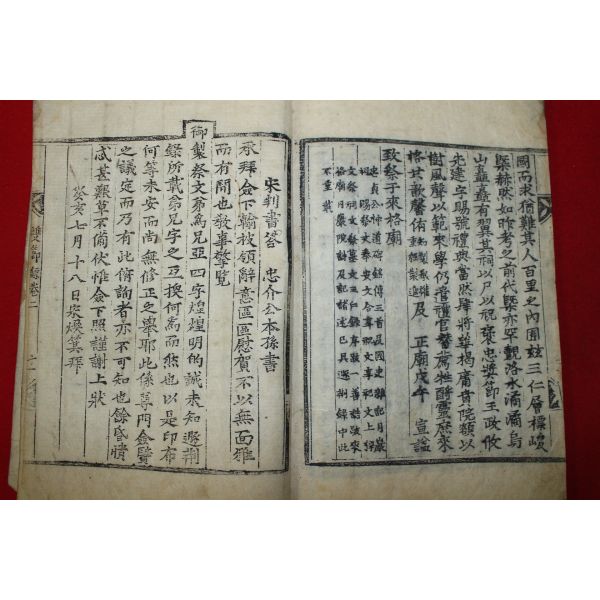 國而求猶難其人百里之內囿玆三仁層標峻
槩赫然如昨考之前代槩亦罕觀洛水潏潏烏
山矗矗有翼其祠以尸以祝褒忠奬節王政攸
先建字賜號禮典當然肆將尊楬庸賁院額以
樹風聲以範來學仍遣禮官警薦牲酹靈庶來
格其歆馨侑 及 正廟戊午 宣諡
致祭于來格廟
不重載
宋判書答 忠介公本孫書
承拜僉下翰披領辭意區區慰賀不以無面雅
而有間也敬華擎覽
御製祭文弟爲兄亞四字煌煌明的誠未知遯荆
錄所載弟兄字之互換何爲而然也以是印布
何等未安而尚無修正之擧耶此係尊門僉賢
之議定而乃有此俯詢者亦不可知也餘昏憒
忒甚艱草不備伏惟僉下照謹謝上狀
癸亥七月十八日宋煥箕拜
雙節錄卷二